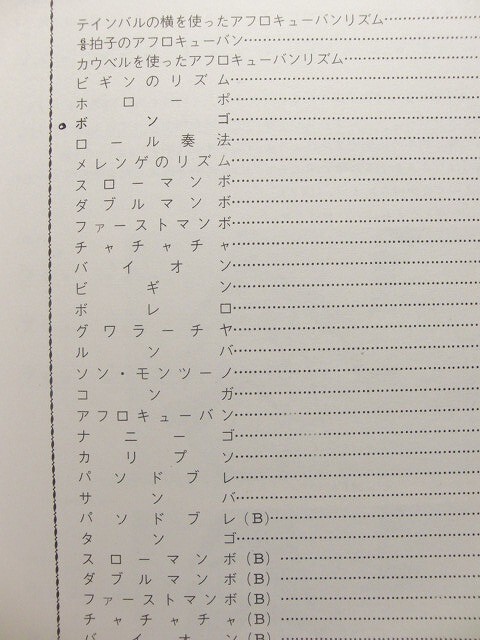 テインバルの横を使ったアフロキューバンリズム
6/8拍子のアフロキューバン
カウベルを使ったアフロキューバンリズム
ビギンのリズム
ホローポ
ボンゴ
ロール奏法
メレンゲのリズム
スローマンボ
ダブルマンボ
ファーストマンボ
チャチャチャ
バイオン
ビギン
ボレロ
グワラーチヤ
ルンバ
ソン・モンツーノ
コンガ
アフロキューバン
ナニーゴ
カリプソ
パソドブレ
サンバ
パソドブレ(B)
タンゴ
スローマンボ(B)
ダブルマンボ(B)
ファーストマンボ(B)
チャチャチャ(B)
バイオン(B)